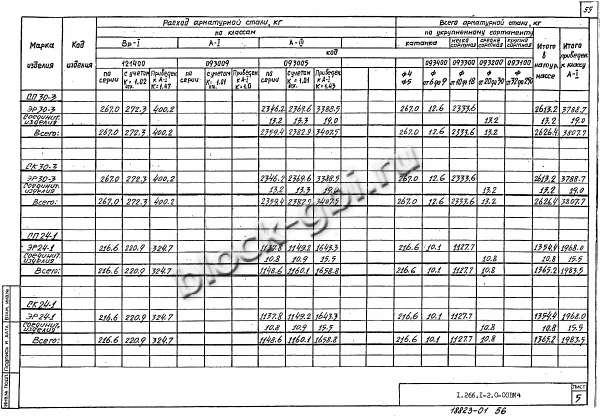 55
Расход арматурной стали, кг
Всего арматурной стали, кг
по классам
по укрупненному сортаменту
Марка изделия
Код изделия
Вр-I
А-I
А-III
катанка
мелко сортная
средне сортная
крупно сортная
Итого в натур. массе
Итого приведен. к классу А-I
код
121400
093009
093005
093400
093300
093200
093100
по серии
с учетом К=1.02
Приведен к А-I К=1.47
по серии
с учетом К=1.01
Приведен к А-I К=1.0
по серии
с учетом К=1.01
Приведен к А-I К=1.43
ф4 ф5
от 6 до 9
от 10 до 18
от 20 до 30
от 32 до
СП30-3
ЭР30-3 267.0 272.3 400.2 2346.2 2369.6 3388.5 267.0 12.6 2333.6 2613.2 3788.7
Соединит. изделия 13.2 13.3 19.0 13.2 13.2 19.0
Всего: 267.0 272.3 400.2 2359.4 2382.9 3407.5 267.0 12.6 2333.6 13.2 2626.4 3807.7
СК30-3
ЭР30-3 267.0 272.3 400.2 2346.2 2369.6 3388.5 267.0 12.6 2333.6 2613.2 3788.7
Соединит. изделия 13.2 13.3 19.0 13.2 13.2 19.0
Всего: 267.0 272.3 400.2 2359.4 2382.9 3407.5 267.0 12.6 2333.6 13.2 2626.4 3807.7
СП24-1
ЭР24-1 216.6 220.9 324.7 1137.8 1149.2 1643.3 216.6 10.1 1127.7 1354.4 1968.0
Соединит. изделия 10.8 10.9 15.5 10.8 10.8 15.5
Всего: 216.6 220.9 324.7 1148.6 1160.1 1658.8 216.6 10.1 1127.7 10.8 1365.2 1983.5
СК24-1
ЭР24-1 216.6 220.9 324.7 1137.8 1149.2 1643.3 216.6 10.1 1127.7 1354.4 1968.0
Соединит. изделия 10.8 10.9 15.5 10.8 10.8 15.5
Всего: 216.6 220.9 324.7 1148.6 1160.1 1658.8 216.6 10.1 1127.7 10.8 1365.2 1983.5
block-gbi.ru
Инв.№ подл. Подпись и дата Взам. инв.№
1.266.1-2.0-00ВМ4
Лист
5
18823-01 56